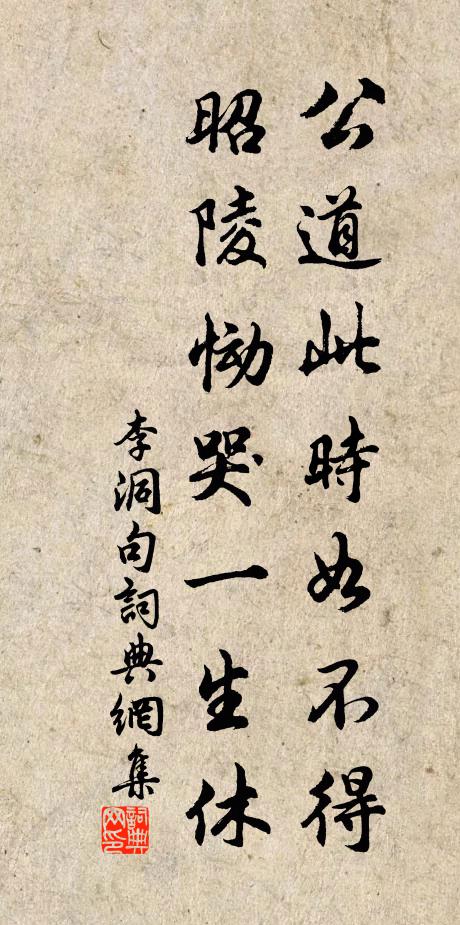 公道此時如不得
昭陵慟哭一生休
李洞句詞典網集
詞典网印